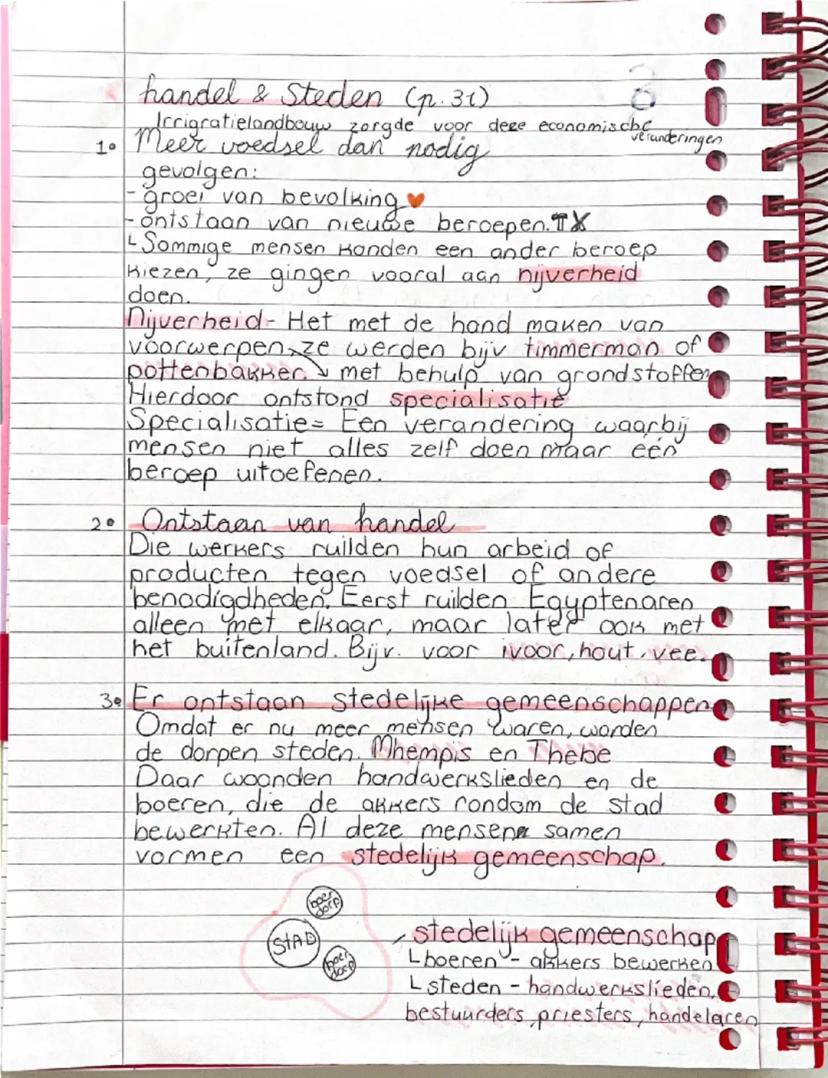 handel & Steden (p.31)
Irrigratielandbouw zorgde voor deze economische veranderingen
1° Meer voedsel dan nodig
gevolgen:
- groei van bevolking
- ontstaan van nieuwe beroepen.
└ Sommige mensen konden een ander beroep
kiezen, ze gingen vooral aan nijverheid
doen.
Nijverheid - Het met de hand maken van
voorwerpen, ze werden bijv timmerman of
pottenbakker. ↘ met behulp van grondstoffen
Hierdoor ontstond specialisatie
Specialisatie = Een verandering waarbij
mensen niet alles zelf doen maar één
beroep uitoefenen.
2° Ontstaan van handel
Die werkers ruilden hun arbeid of
producten tegen voedsel of andere
benodigdheden. Eerst ruilden Egyptenaren
alleen met elkaar, maar later ook met
het buitenland. Bijv. voor ivoor, hout, vee.
3° Er ontstaan stedelijke gemeenschappen
Omdat er nu meer mensen waren, worden
de dorpen steden. Mhempis en Thebe
Daar woonden handwerkslieden en de
boeren, die de akkers rondom de stad
bewerkten. Al deze mensen samen
vormen een stedelijk gemeenschap.
boer dorp
STAD
boer dorp
stedelijk gemeenschap
└ boeren - akkers bewerken
└ steden - handwerkslieden,
bestuurders, priesters, handelaren